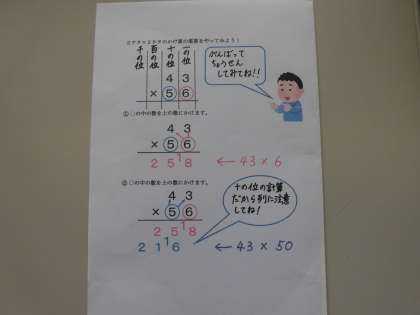 ２ケタ×２ケタのかけ算の筆算をやってみよう！
千の位 百の位 十の位 一の位
4 3
× 5 6
がんばって
ちょうせん
してみてね!!
① ○の中の数を上の数にかけます。
4 3
× 5 6
2 5 1 8 ← 43 × 6
② ○の中の数を上の数にかけます。
4 3
× 5 6
2 5 1 8
2 1 1 6 ← 43 × 50
十の位の計算
だから列に注意
してね!